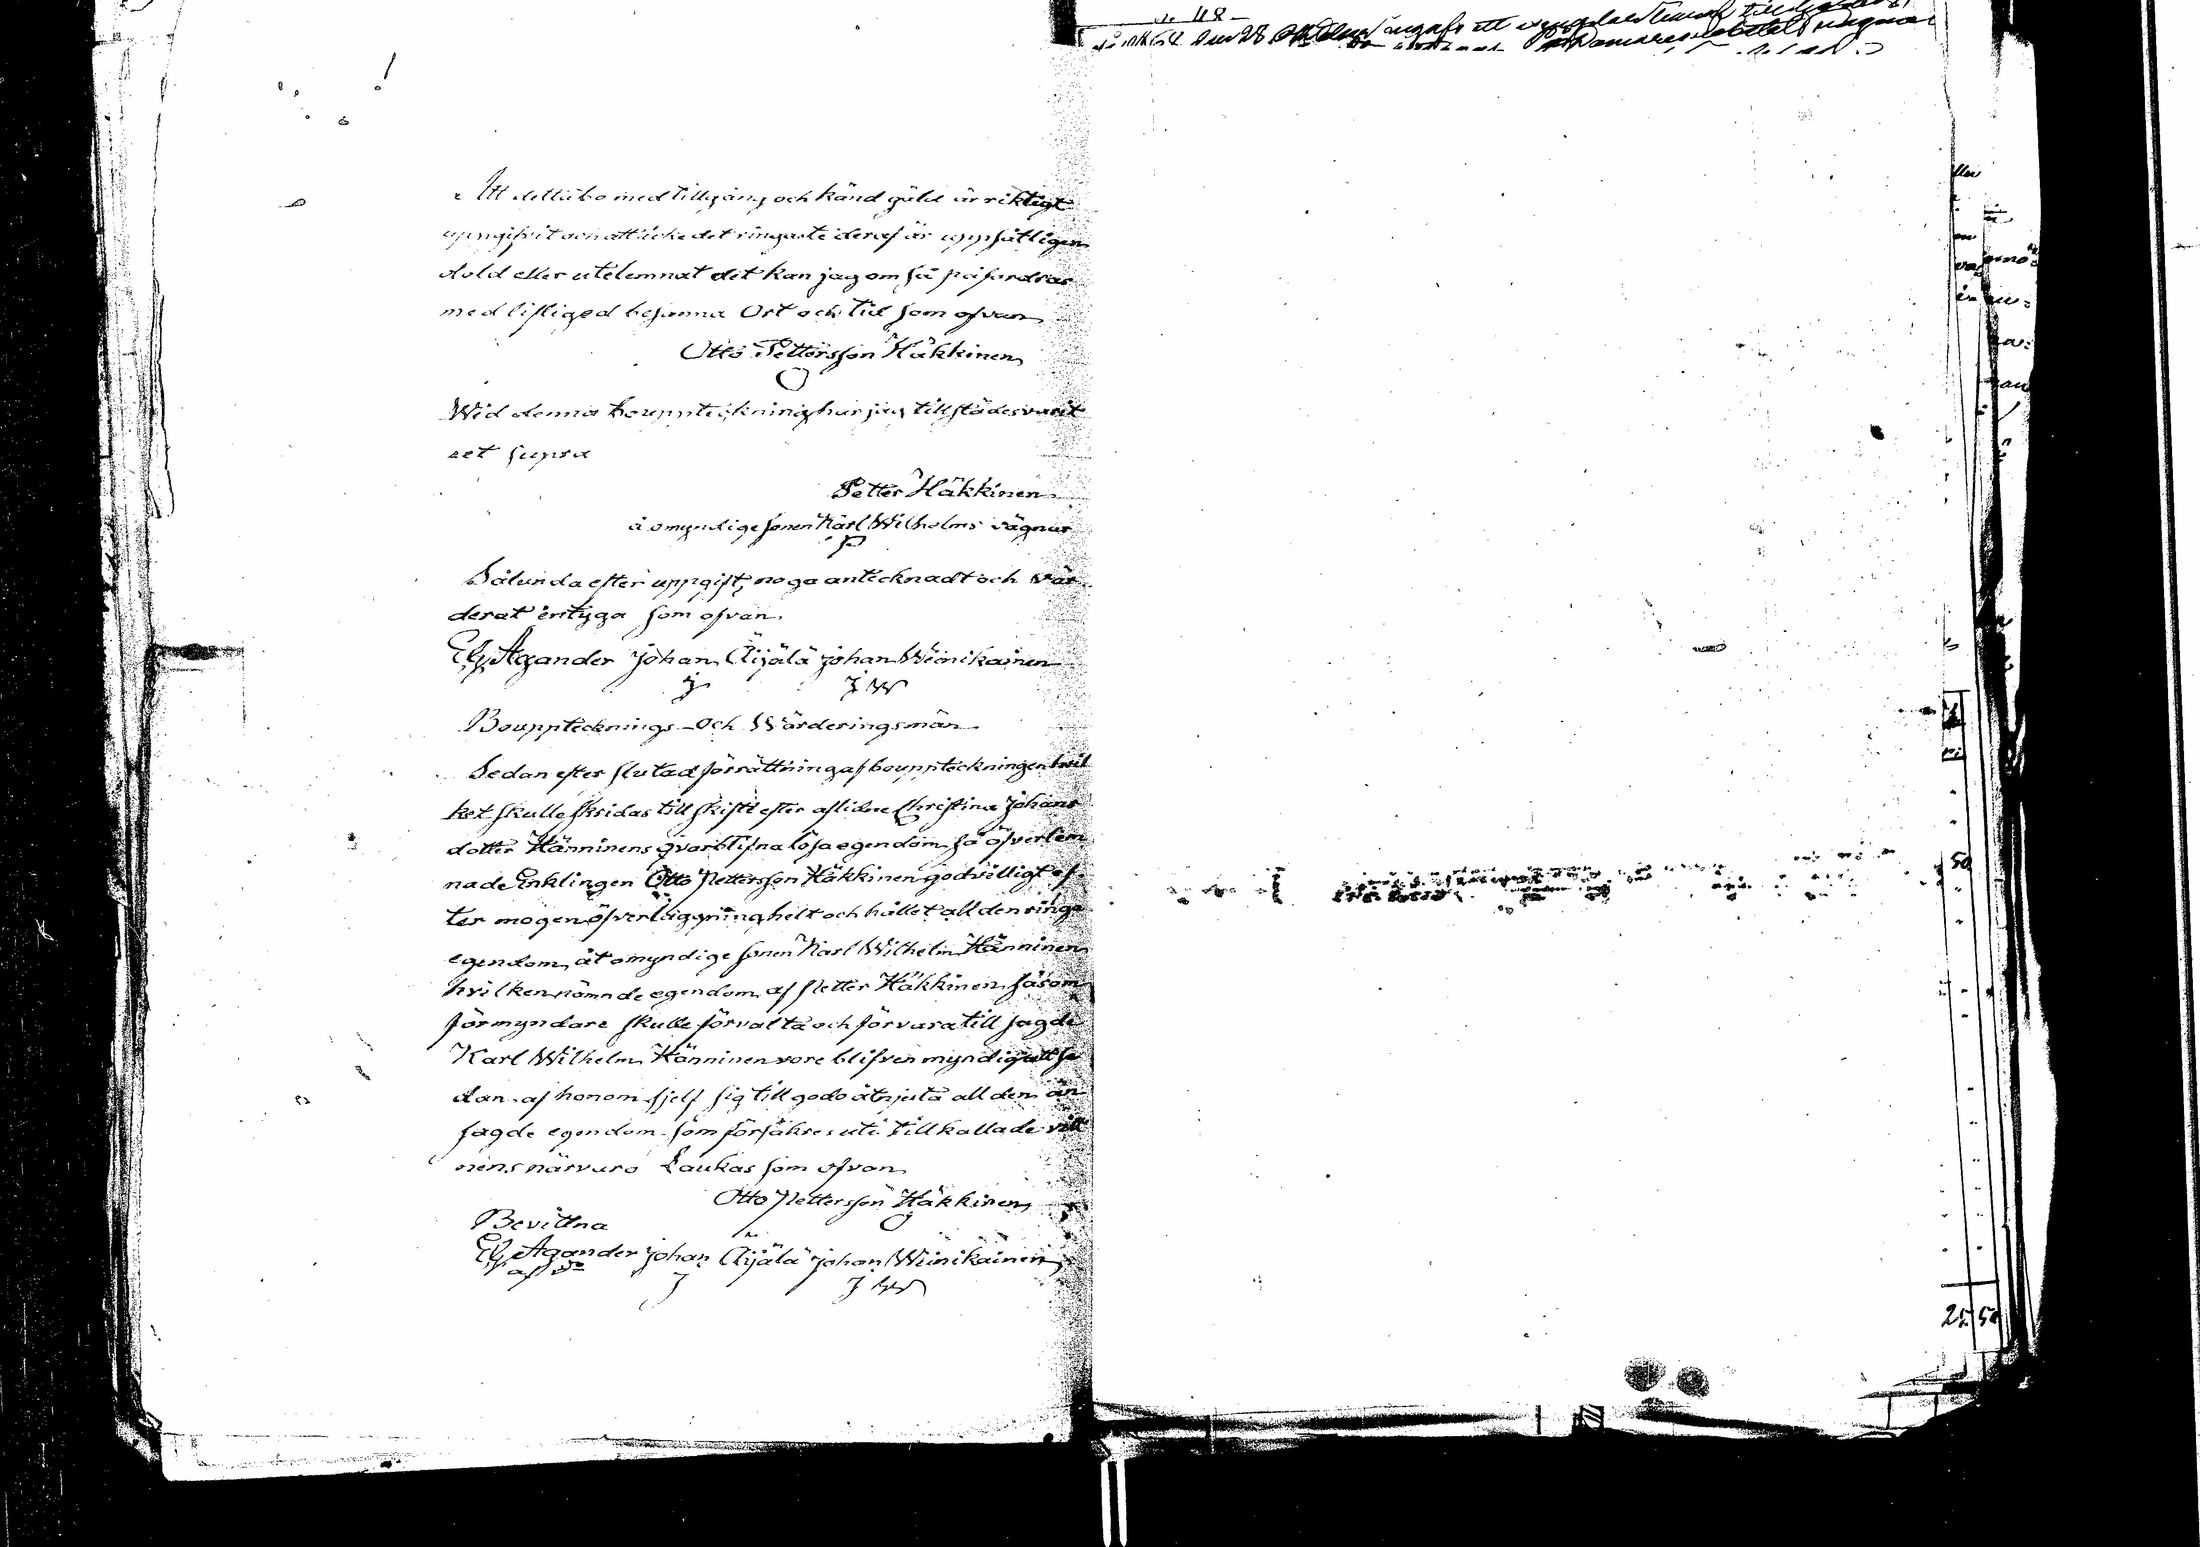 Att detta bo med tillgång och känd gäld är riktigt
uppgifvit och att icke det ringaste deraf är uppsåtligen
dold eller utelemnat det kan jag om så påfordras
med liflig ed besanna Ort och tid som ofvan
Otto Pettersson Häkkinen
Wid denna bouppteckning har jag tillstädes varit
ut supra
Petter Häkkinen
å omyndige sonen Karl Wilhelms vägnar
P
Sålunda efter uppgift, noga antecknadt och vär
derat intyga som ofvan.
El. Agander Johan Äijälä Johan Wiinikainen
J J W
Boupptecknings- och Wärderingsmän
Sedan efter slutad förrättning af bouppteckningen hvil
ket skulle skridas till skifte efter aflidne Christina Johans
dotter Hänninens qvarblifna lösa egendom så öfverlem
nade Enklingen Otto Pettersson Häkkinen godvilligt ef
ter mogen öfverläggning helt och hållet all den ringa
egendom åt omyndige sonen Karl Wilhelm Hänninen
hvilken nämnde egendom af Petter Häkkinen såsom
förmyndare skulle förvalta och förvara till sagde
Karl Wilhelm Hänninen vore blifven myndig att se
dan af honom sjelf sig till godo åtnjuta all den än
sagde egendom som försäkres uti tillkallade vitt
nens närvaro Laukas som ofvan
Otto Pettersson Häkkinen
Bevittna
El. Agander Johan Äijälä Johan Wiinikainen
J J W
50
25 50